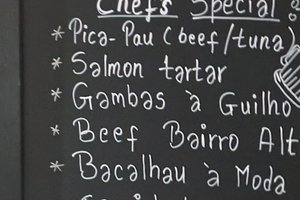 Chefs Special
* Pica-Pau (beef/tuna)
* Salmon tartar
* Gambas à Guilho
* Beef Bairro Alt
* Bacalhau à Moda